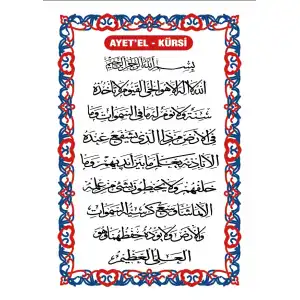 AYET'EL - KÜRSİ
بسم الله الرحمن الرحيم
الله لا اله الا هو الحي القيوم لا تاخذه
سنة ولا نوم له ما في السموات وما
في الارض من ذا الذي يشفع عنده
الا باذنه يعلم ما بين ايديهم وما
خلفهم ولا يحيطون بشيء من علمه
الا بما شاء وسع كرسيه السموات
والارض ولا يؤده حفظهما وهو
العلي العظيم